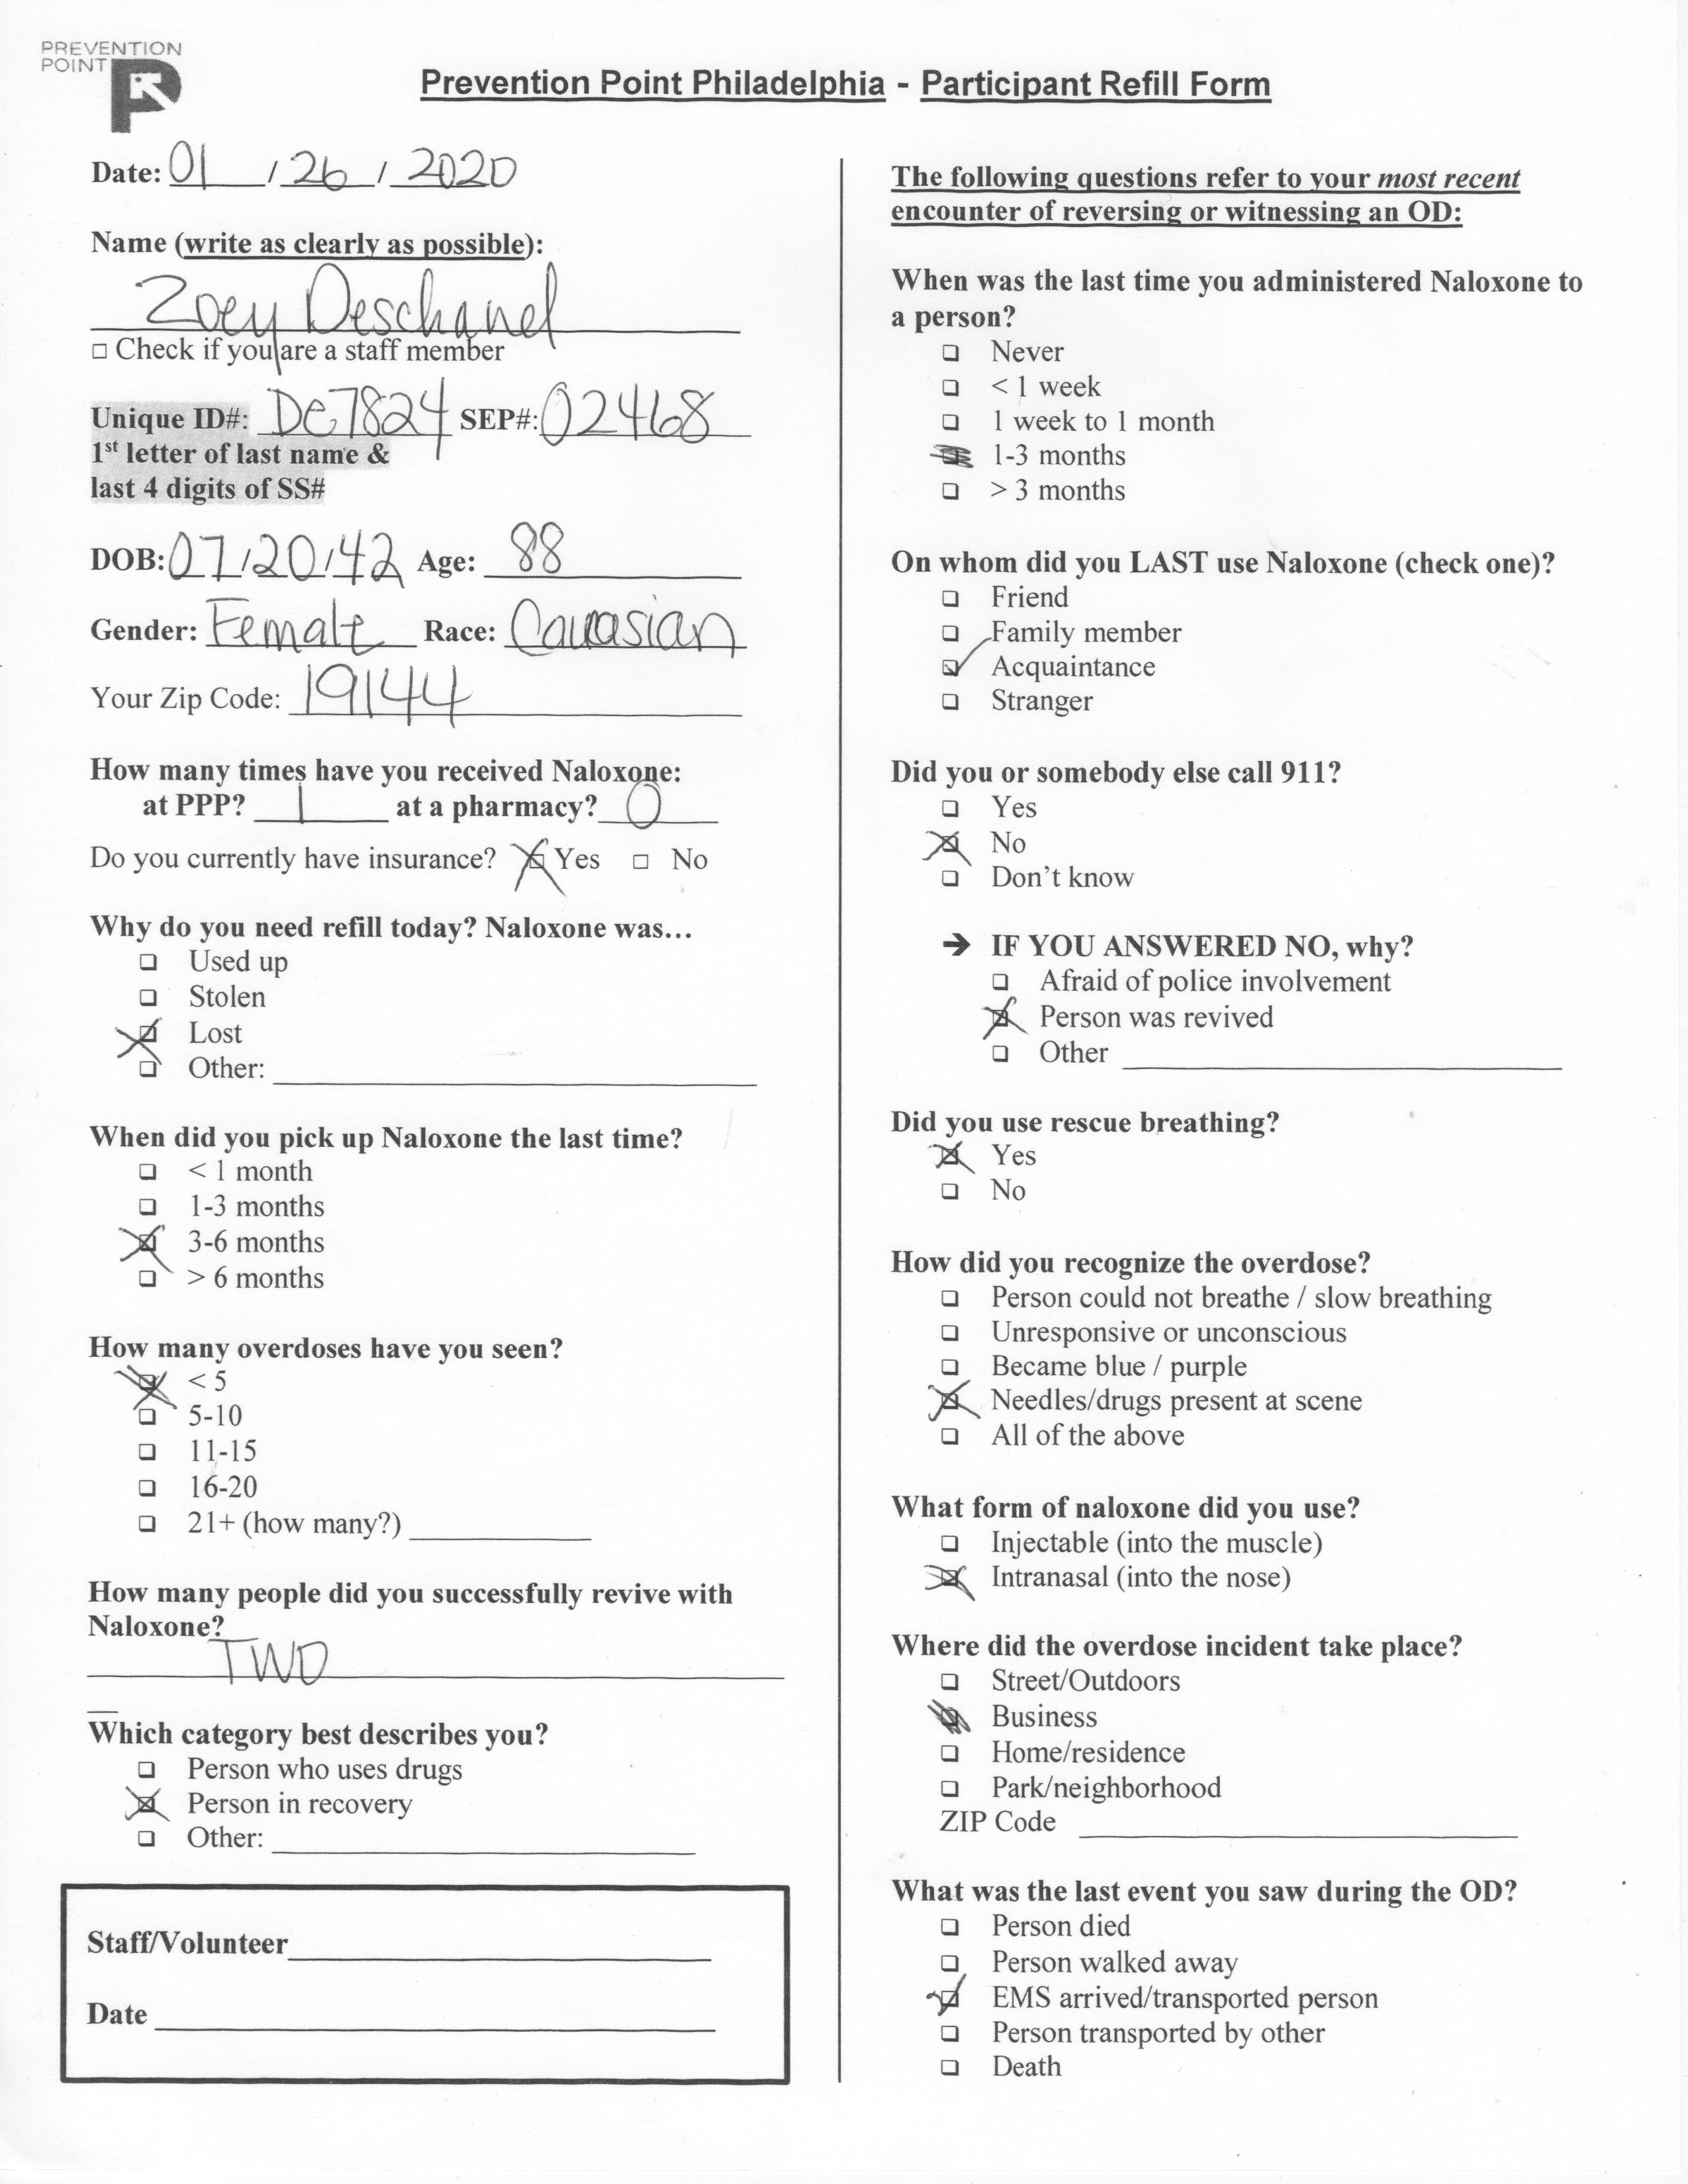 PREVENTION
POINT
Prevention Point Philadelphia - Participant Refill Form
Date: 01 / 26 / 2020
Name (write as clearly as possible):
Zoey Deschanel
□ Check if you are a staff member
Unique ID#: De7824 SEP#: 02468
1st letter of last name &
last 4 digits of SS#
DOB: 07/20/42 Age: 88
Gender: Female Race: Caucasian
Your Zip Code: 19144
How many times have you received Naloxone:
at PPP? 1 at a pharmacy? 0
Do you currently have insurance? ☒ Yes □ No
Why do you need refill today? Naloxone was...
❑ Used up
❑ Stolen
☒ Lost
❑ Other:
When did you pick up Naloxone the last time?
❑ < 1 month
❑ 1-3 months
☒ 3-6 months
❑ > 6 months
How many overdoses have you seen?
☒ < 5
❑ 5-10
❑ 11-15
❑ 16-20
❑ 21+ (how many?)
How many people did you successfully revive with
Naloxone?
TWO
Which category best describes you?
❑ Person who uses drugs
☒ Person in recovery
❑ Other:
Staff/Volunteer
Date
The following questions refer to your most recent
encounter of reversing or witnessing an OD:
When was the last time you administered Naloxone to
a person?
❑ Never
❑ < 1 week
❑ 1 week to 1 month
☒ 1-3 months
❑ > 3 months
On whom did you LAST use Naloxone (check one)?
❑ Friend
❑ Family member
☑ Acquaintance
❑ Stranger
Did you or somebody else call 911?
❑ Yes
☒ No
❑ Don't know
➔ IF YOU ANSWERED NO, why?
❑ Afraid of police involvement
☒ Person was revived
❑ Other
Did you use rescue breathing?
☒ Yes
❑ No
How did you recognize the overdose?
❑ Person could not breathe / slow breathing
❑ Unresponsive or unconscious
❑ Became blue / purple
☒ Needles/drugs present at scene
❑ All of the above
What form of naloxone did you use?
❑ Injectable (into the muscle)
☒ Intranasal (into the nose)
Where did the overdose incident take place?
❑ Street/Outdoors
☒ Business
❑ Home/residence
❑ Park/neighborhood
ZIP Code
What was the last event you saw during the OD?
❑ Person died
❑ Person walked away
☑ EMS arrived/transported person
❑ Person transported by other
❑ Death